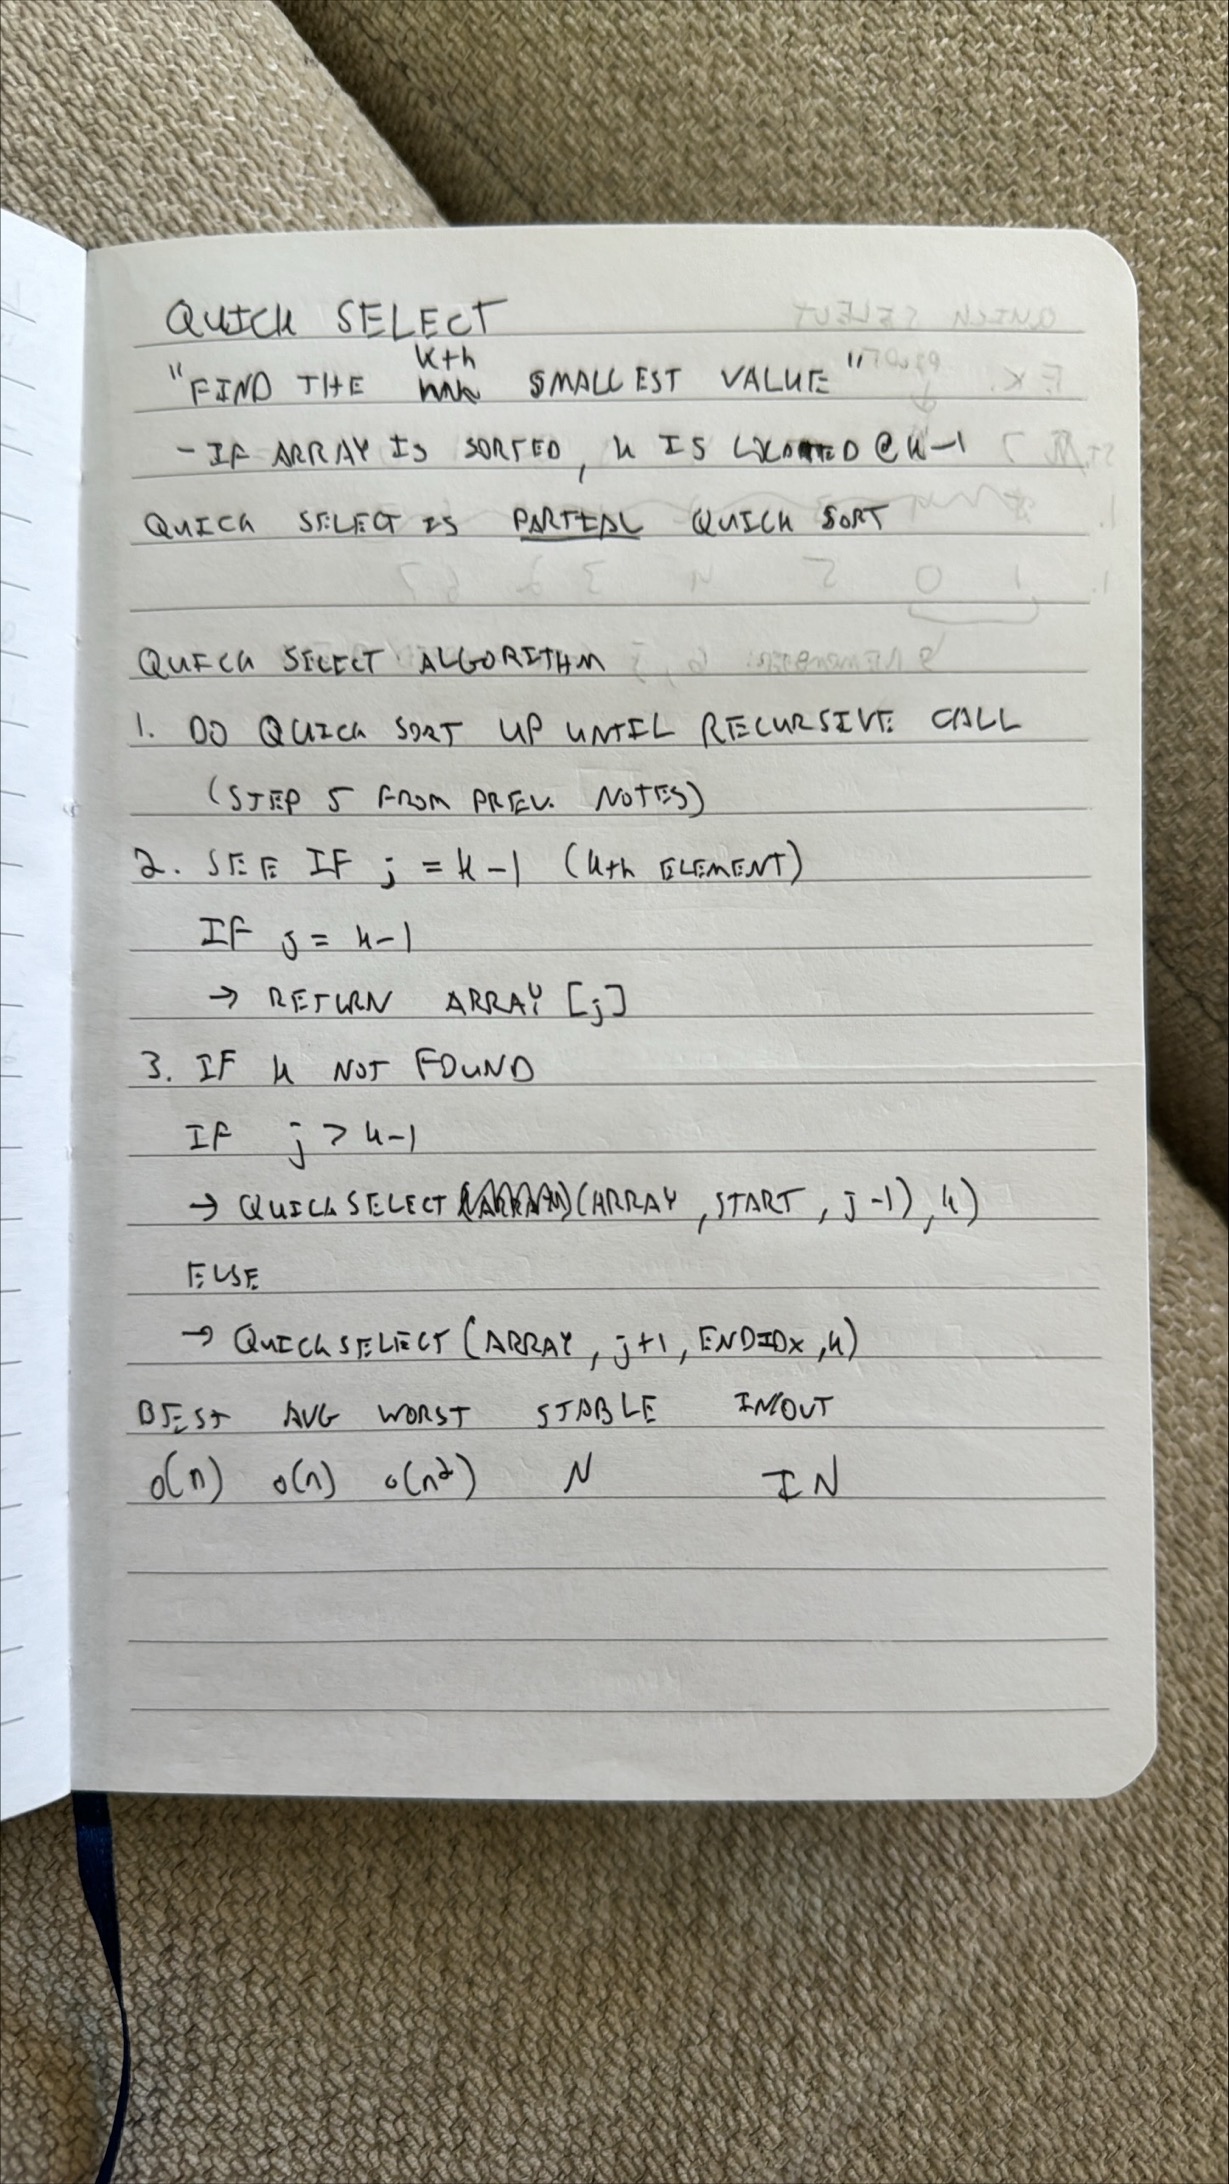 QUICK SELECT
"FIND THE kth SMALLEST VALUE"
- IF ARRAY IS SORTED, k IS LOCATED @ k-1
QUICK SELECT IS PARTIAL QUICK SORT
QUICK SELECT ALGORITHM
1. DO QUICK SORT UP UNTIL RECURSIVE CALL
(STEP 5 FROM PREV. NOTES)
2. SEE IF j = k-1 (kth ELEMENT)
IF j = k-1
→ RETURN ARRAY [j]
3. IF k NOT FOUND
IF j > k-1
→ QUICKSELECT (ARRAY, START, j-1), k)
ELSE
→ QUICKSELECT (ARRAY, j+1, ENDIDX, k)
BEST AVG WORST STABLE IN/OUT
O(n) O(n) O(n²) N IN